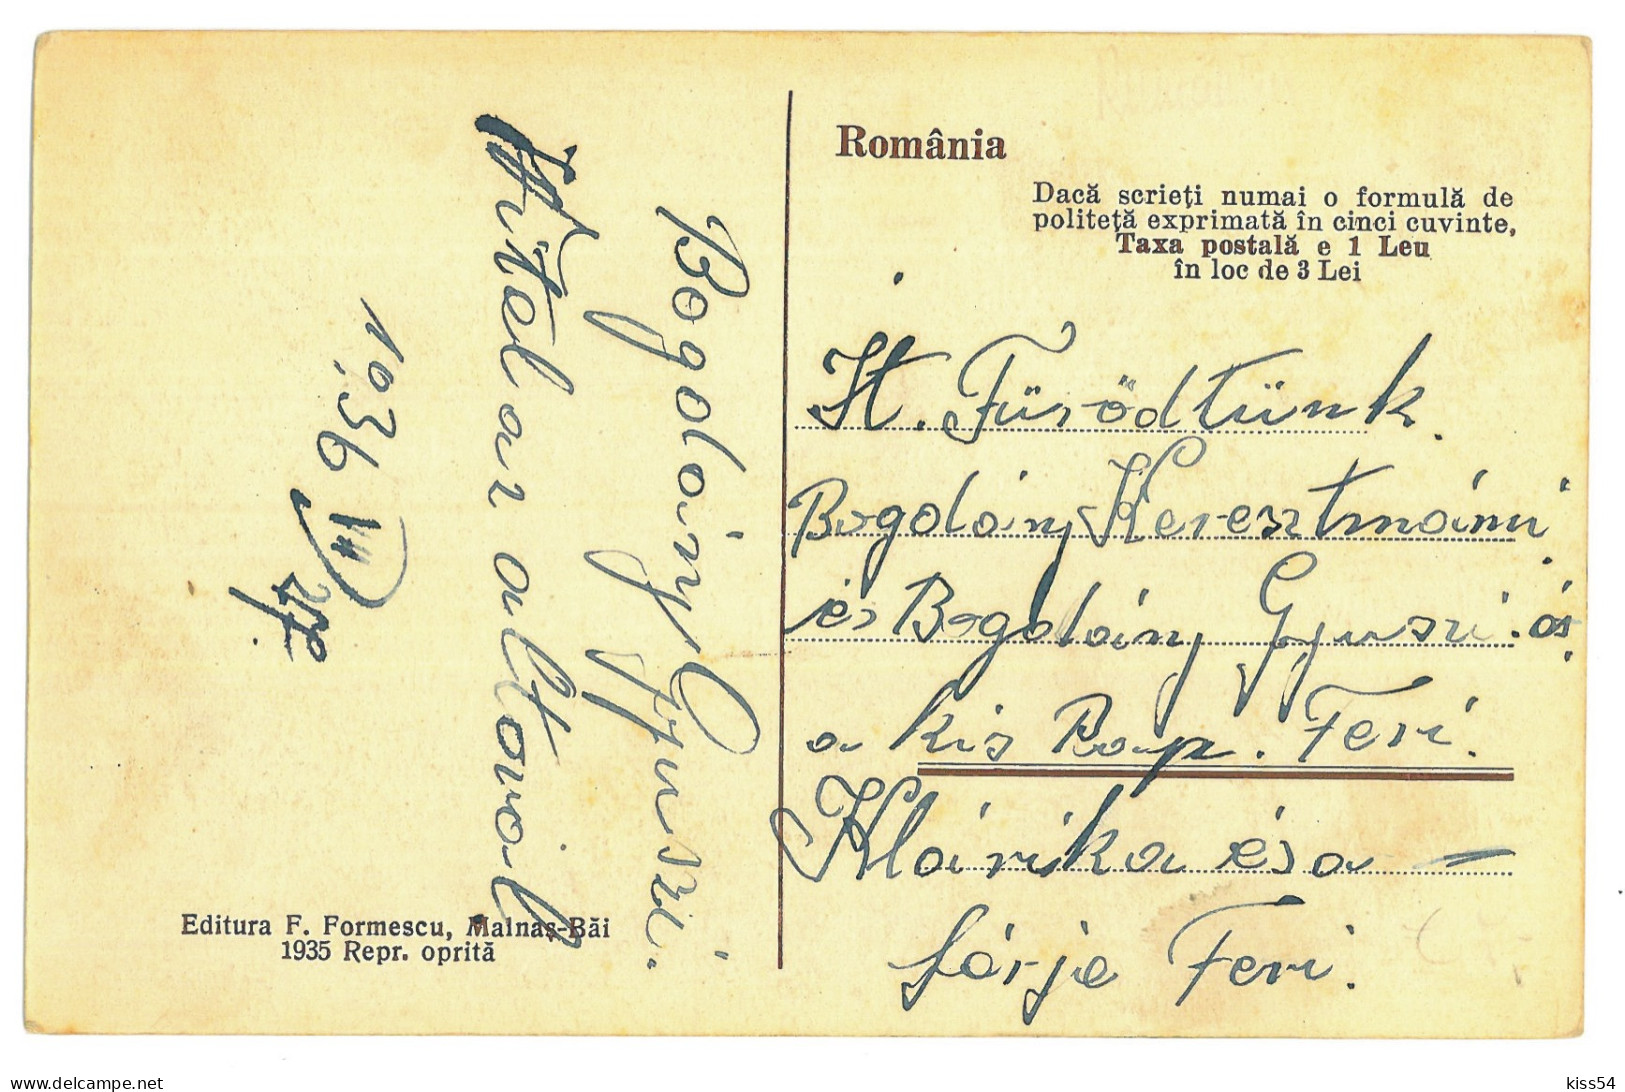 România
Dacă scrieți numai o formulă de
politeță exprimată în cinci cuvinte,
Taxa postală e 1 Leu
în loc de 3 Lei
It. Fürödtünk.
Bogdány Keresztmámi
és Bogdány Gyuszi. és
a kis Pap. Feri.
Klárika és a —
férje Feri.
Bogdány Gyuszi.
Hitelar altoval
1936 VII
Editura F. Formescu, Malnaș-Băi
1935 Repr. oprită
kiss54
delcampe.net